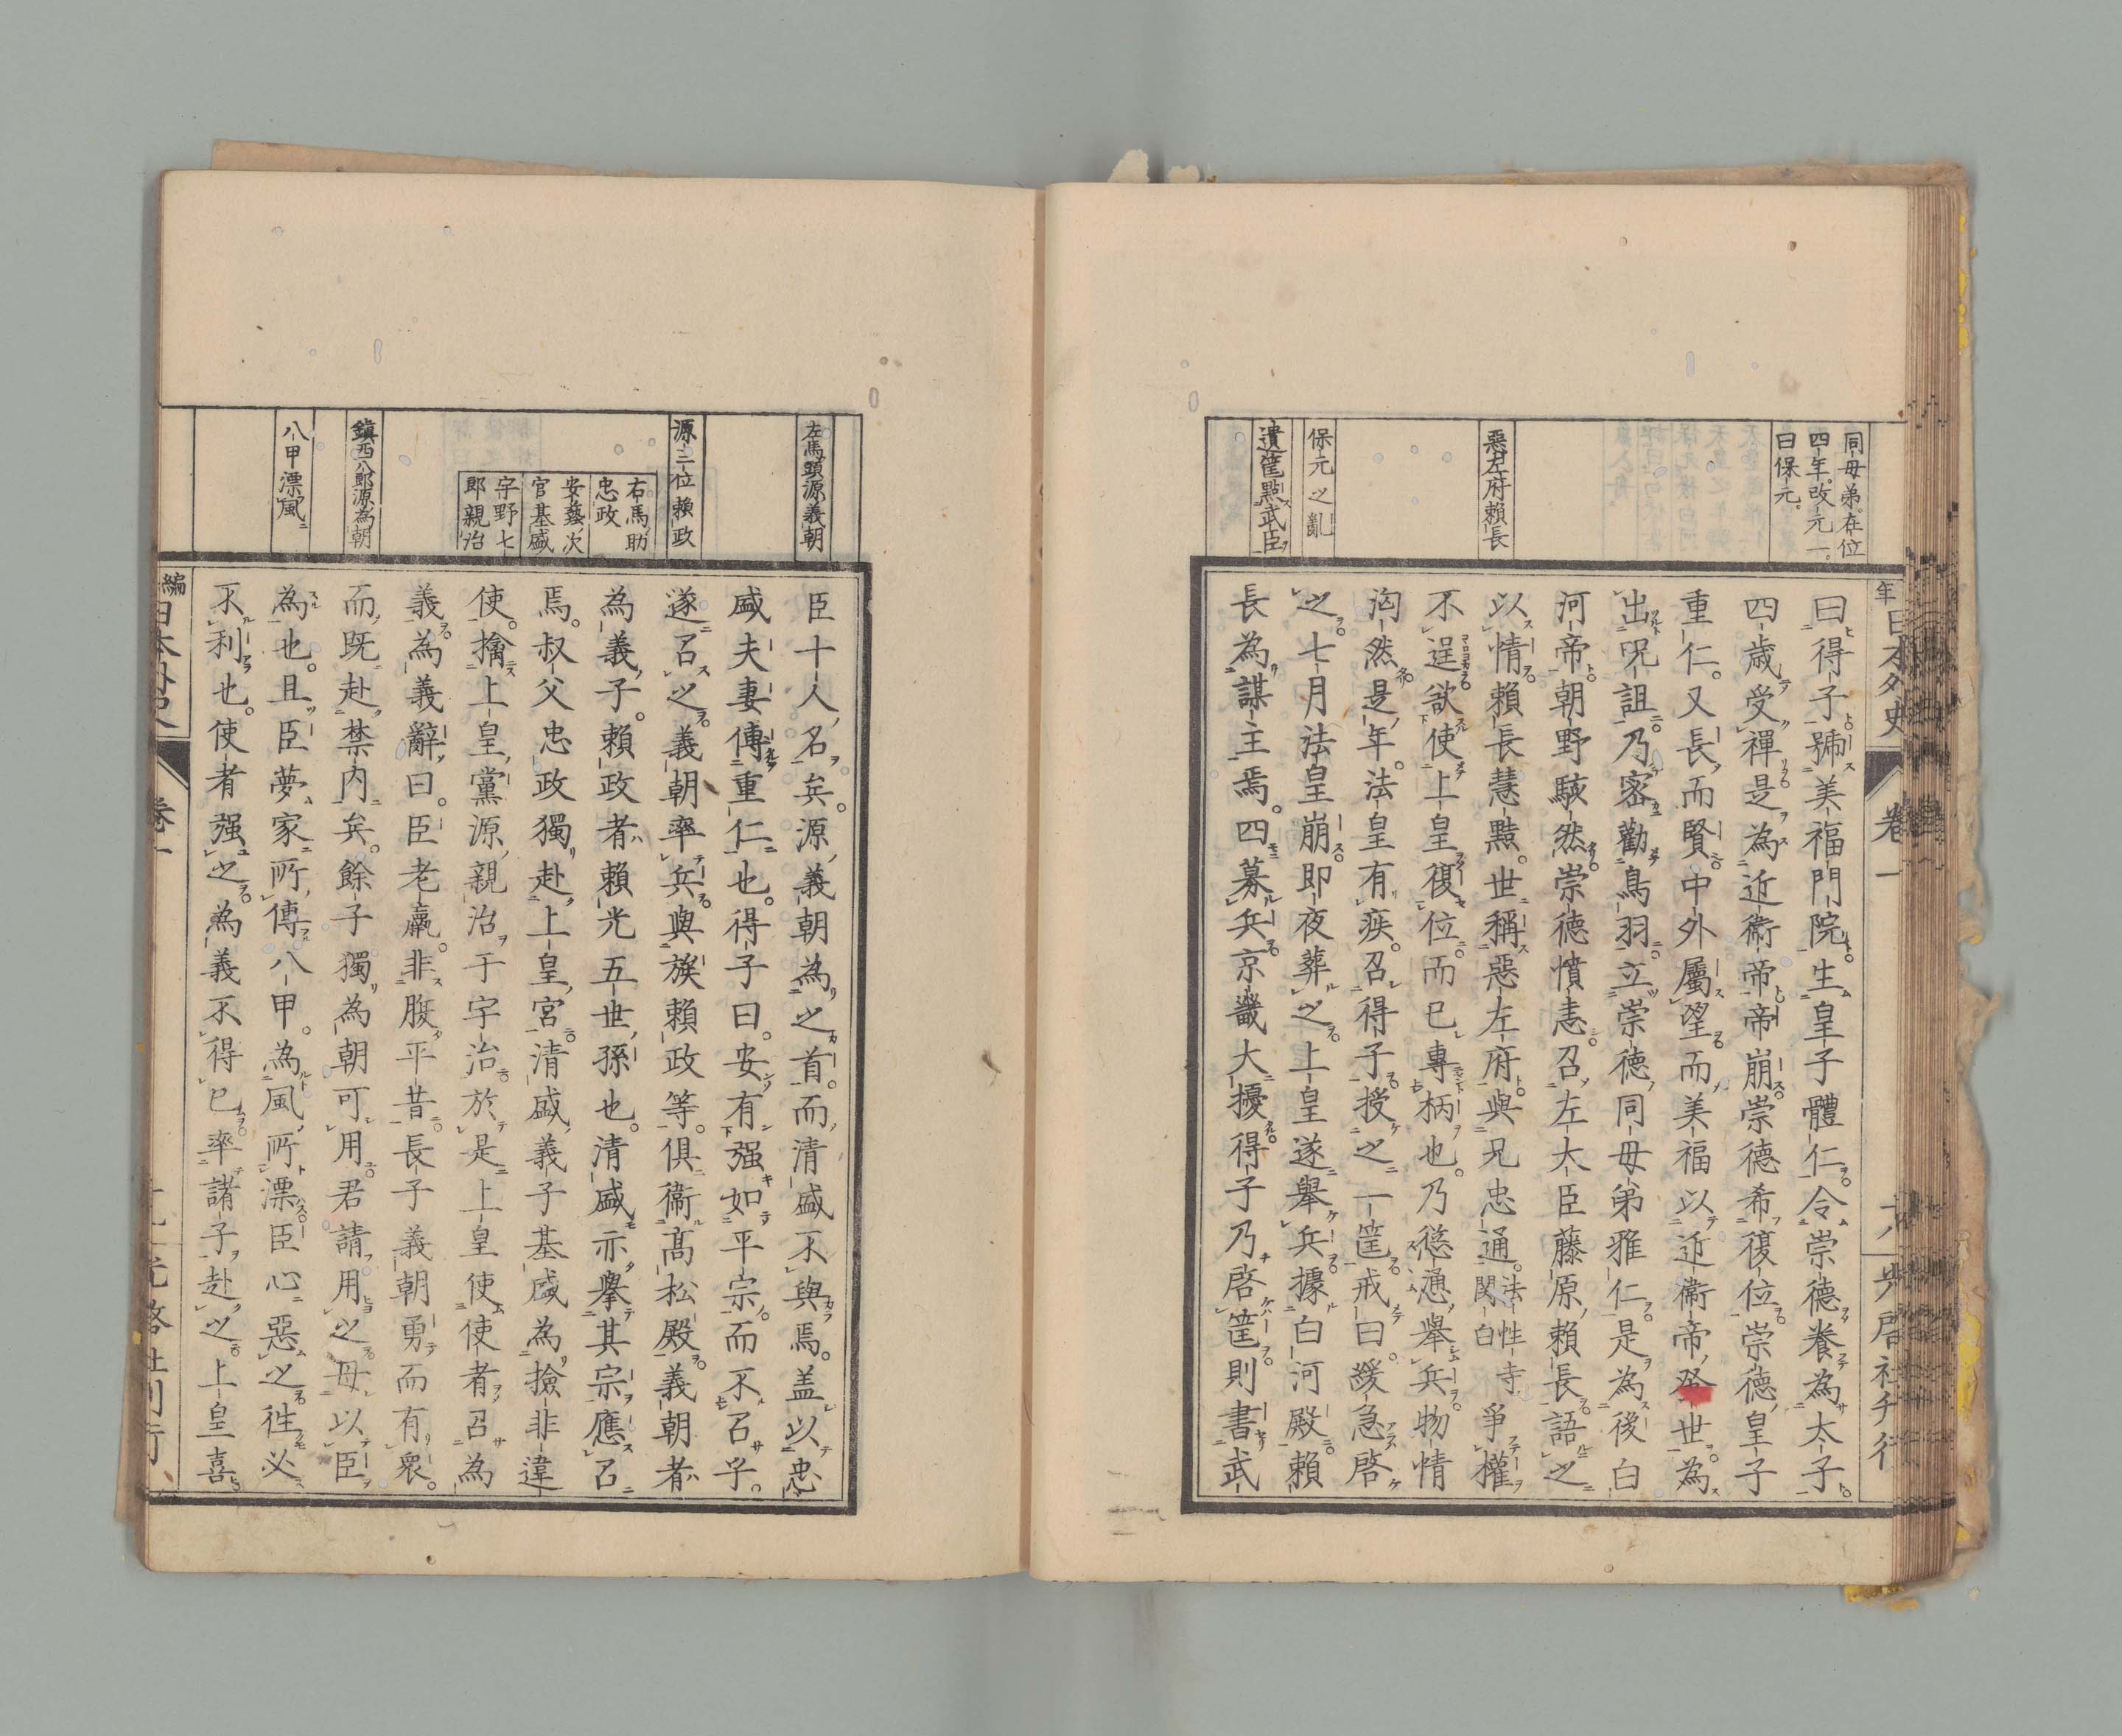 同母弟。在位
四年。改元一。
曰保元。
惡左府賴長
保元之亂
遺筐點武臣
年日本外史
卷一
曰得子。號美福門院。生皇子體仁。令崇德養為太子。
四歲受禪。是為近衞帝。帝崩。崇德希復位。崇德皇子
重仁。又長而賢。中外屬望。而美福以近衞帝癸世。為
出呪詛。乃密勸鳥羽。立崇德同母弟雅仁。是為後白
河帝。朝野駭然。崇德憤恚。召左大臣藤原賴長。語之
以情。賴長慧黠。世稱惡左府。與兄忠通法性寺関白爭權
不逞。欲使上皇復位。而已專柄也。乃慫通舉兵。物情
洶然。是年。法皇有疾。召得子授之一筐。戒曰。緩急啓
之。七月法皇崩。即夜葬之。上皇遂舉兵據白河殿。賴
長為謀主焉。四募兵。京畿大擾。得子乃啓筐。則書武
左馬頭源義朝
源三位賴政
右馬助
忠政
安藝次
官基盛
宇野七
郎親治
鎮西八郎源為朝
八甲漂風
臣十人名矣。源義朝為之首。而清盛不與焉。盖以忠
盛夫妻傅重仁也。得子曰。安有强如平宗。而不召乎。
遂召之。義朝率兵。與族賴政等。俱衞高松殿。義朝者
為義子。賴政者賴光五世孫也。清盛亦擧其宗應召
焉。叔父忠政獨赴上皇宮。清盛義子基盛為撿非違
使。擒上皇黨源親治于宇治。於是上皇使使者召為
義。為義辭曰。臣老羸。非腹平昔。長子義朝勇而有衆。
而既赴禁內矣。餘子獨為朝可用。君請用之。毋以臣
為也。且臣夢家所傳八甲。為風所漂。臣心惡之。往必
不利也。使者强之。為義不得已。率諸子赴之。上皇喜。